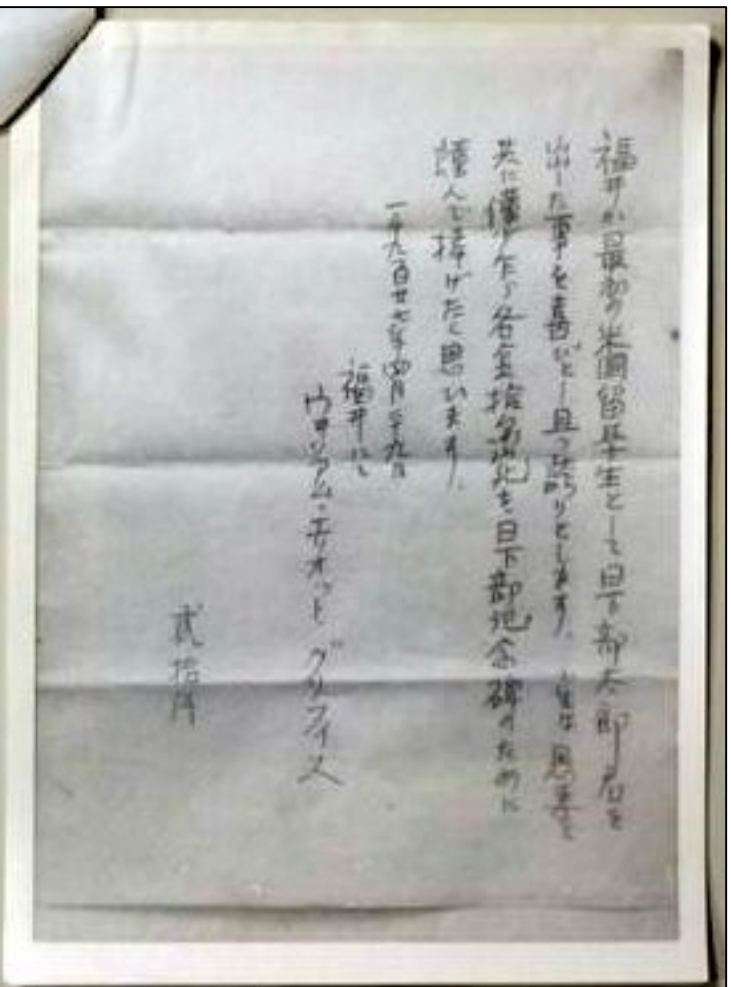 福井が最初の米國留学生として日下部太郎君を
出した事を喜びとし且つ誇りとします。小生は愚妻と
共に僅少乍ら各金拾圓宛を日下部記念碑のために
謹んで捧げたく思います。
一千九百廿七年四月二十九日
福井にて
ウヰリアム・エリオット グリフィス
弐拾円